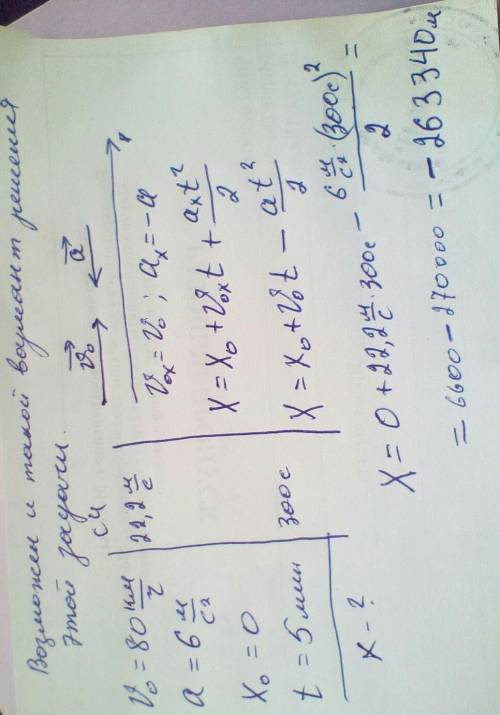 Возможен и такой вариант решения
этой задачи.
СИ
v₀ = 80 км/ч | 22,2 м/с
a = 6 м/с²
x₀ = 0
t = 5 мин | 300 с
x - ?
v₀ a
v₀ₓ = v₀ ; aₓ = -a
x = x₀ + v₀ₓt + aₓt²/2
x = x₀ + v₀t - at²/2
x = 0 + 22,2 м/с · 300с - 6 м/с² · (300с)²/2 =
= 6600 - 270000 = - 263340 м